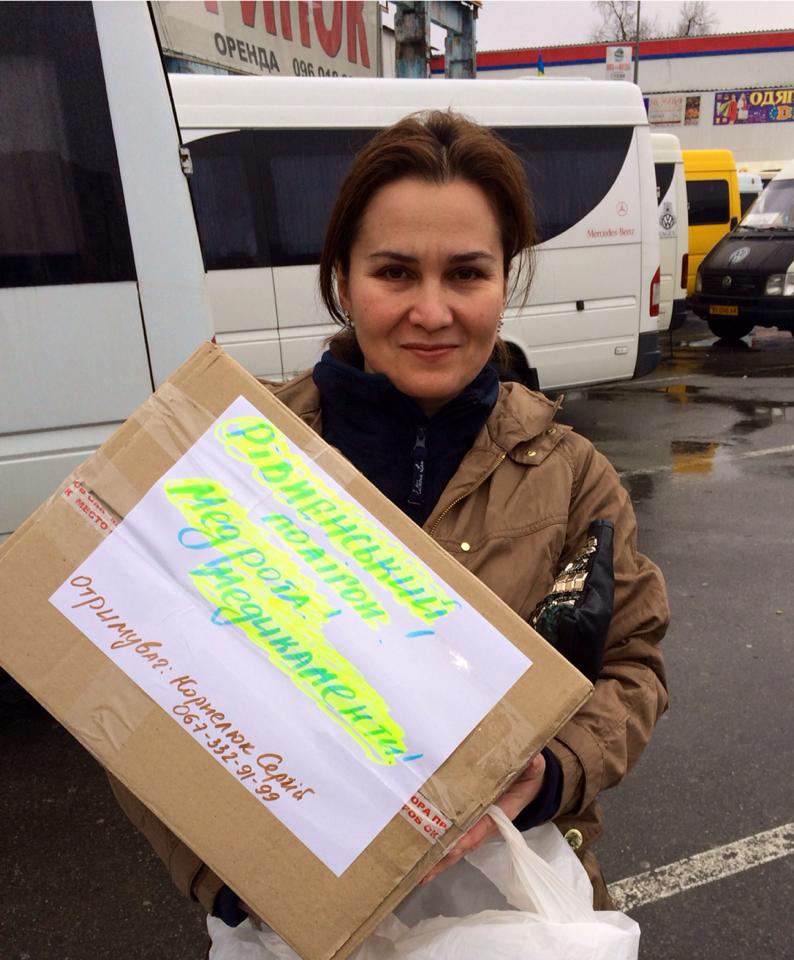 РИНОК
ОРЕНДА 096 010
ОДЯГ
Mercedes-Benz
Рівненський
полігон!
Медрота!
Медикаменти!
Отримувач: Корнелюк Сергій
067-332-91-99
К МЕСТО
ОРА ПР
РОВ СК